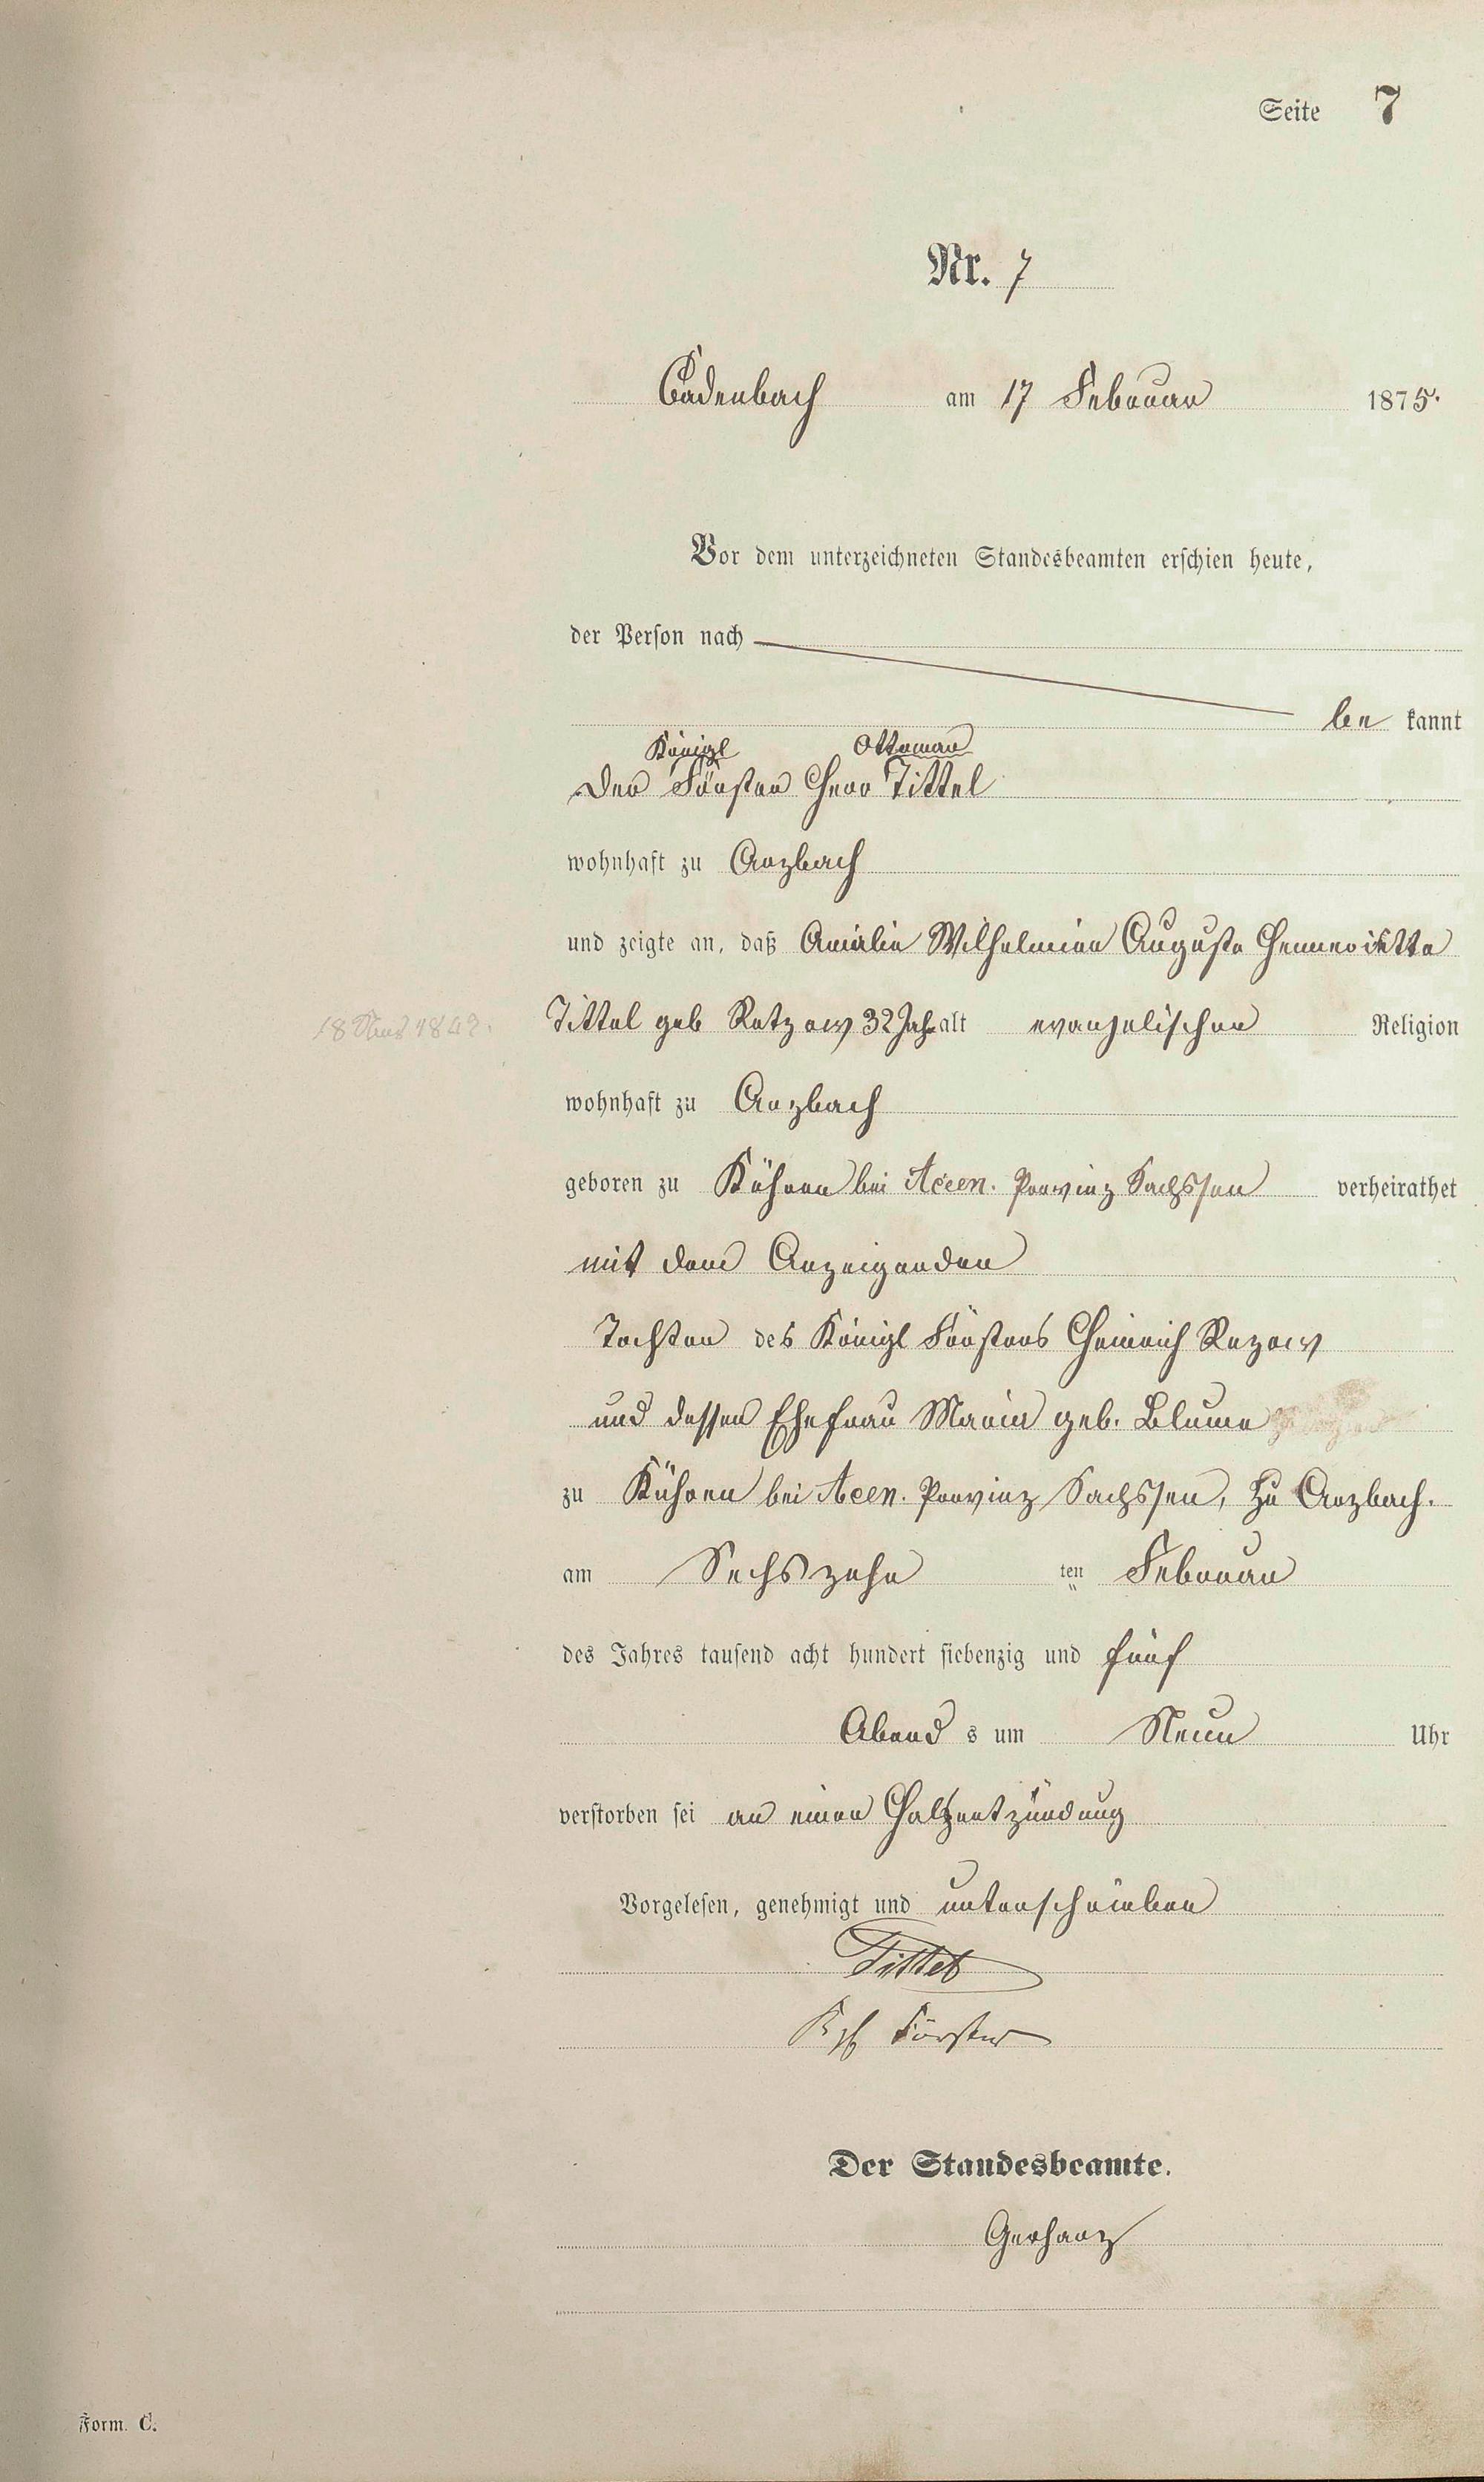 Seite 7
Nr. 7
Cadenbach am 17 Februar 1875.
Vor dem unterzeichneten Standesbeamten erschien heute,
der Person nach
be kannt
Königl Ottomar
Der Förster Herr Tittel
wohnhaft zu Arzbach
und zeigte an, daß Amalie Wilhelmine Auguste Henneriette
Tittel geb Retzow 32 Jahr alt evangelischer Religion
18 1842.
wohnhaft zu Arzbach
geboren zu Kühren bei Aceen. Provinz Sachssen verheirathet
mit dem Anzeigenden
Tochter des Königl Försters Heinrich Rezow
und dessen Ehefrau Maria geb. Blume
zu Kühren bei Aceen. Provinz Sachssen, zu Arzbach.
am Sechszehn ten Februar
des Jahres tausend acht hundert siebenzig und fünf
Abend s um Neun Uhr
verstorben sei an einer Halsentzündung
Vorgelesen, genehmigt und unterschrieben
Tittel
Kgl Förster
Der Standesbeamte.
Gerharz
Form. C.